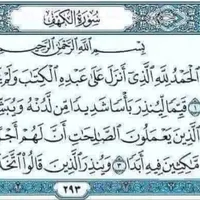 سُورَةُ الْكَهْفِ
بِسْمِ اللَّهِ الرَّحْمَٰنِ الرَّحِيمِ
الْحَمْدُ لِلَّهِ الَّذِي أَنزَلَ عَلَىٰ عَبْدِهِ الْكِتَٰبَ وَلَمْ
١ قَيِّمًا لِّيُنذِرَ بَأْسًا شَدِيدًا مِّن لَّدُنْهُ
الَّذِينَ يَعْمَلُونَ الصَّٰلِحَٰتِ أَنَّ لَهُمْ
مَّٰكِثِينَ فِيهِ أَبَدًا ٣ وَيُنذِرَ الَّذِينَ قَالُوا
٢٩٣